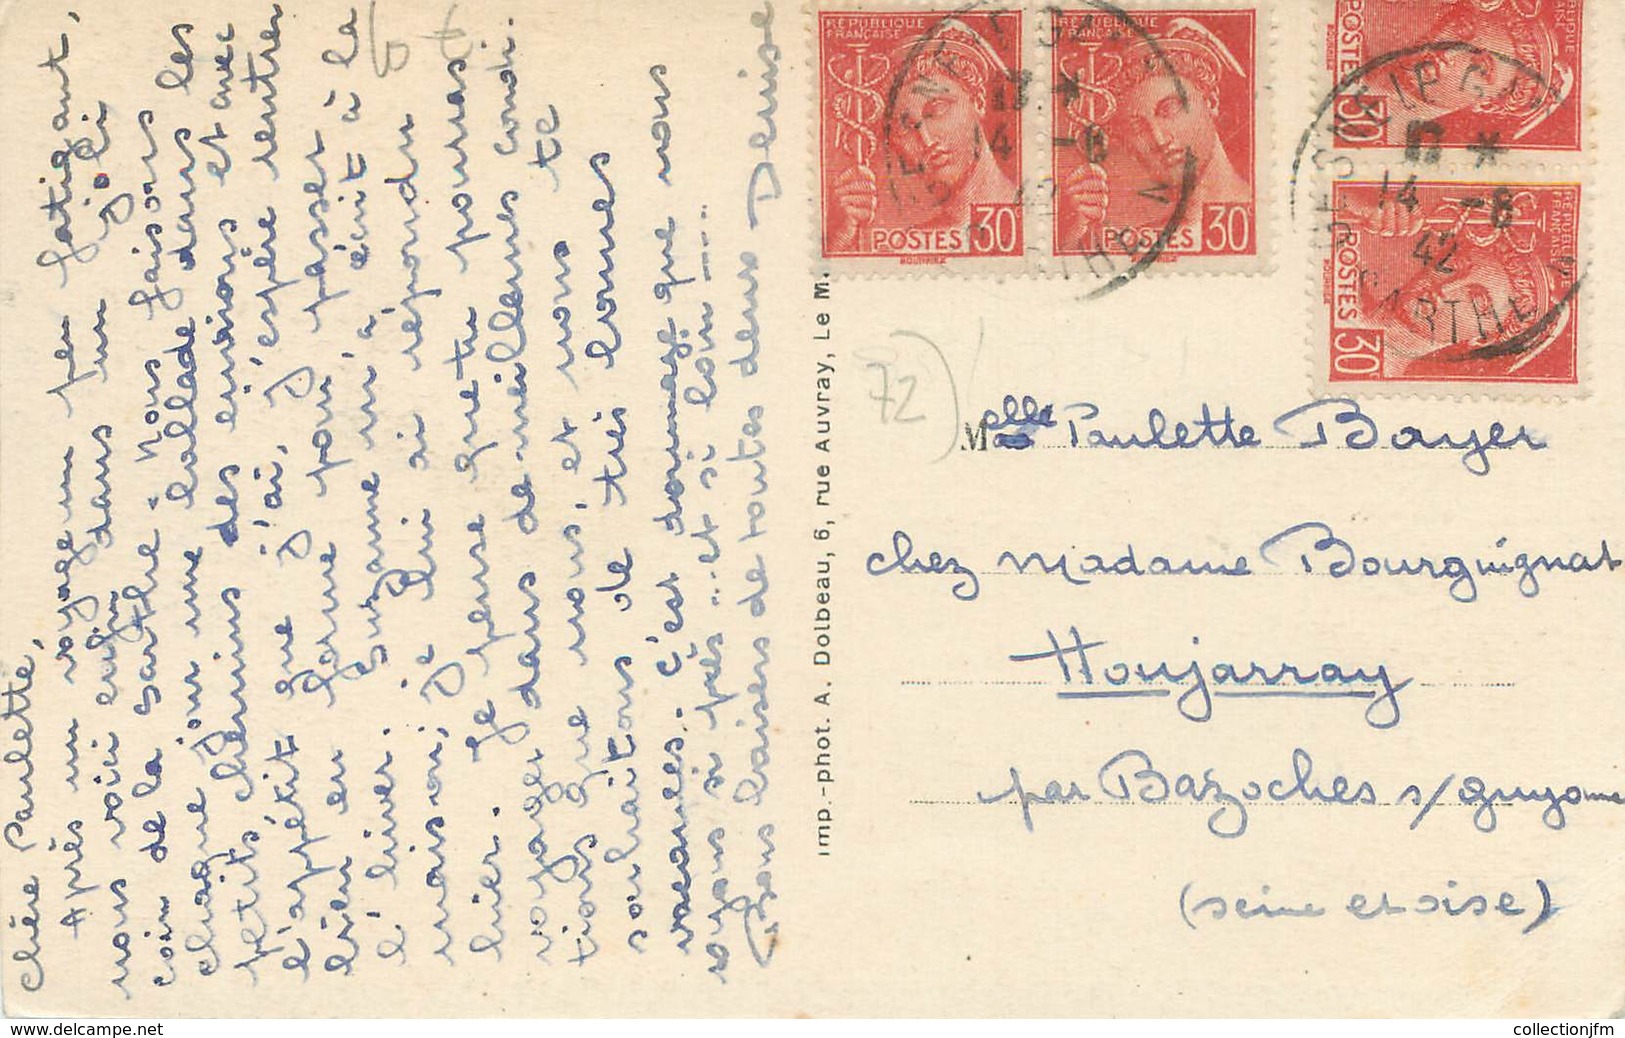 Chère Paulette,
Après un voyage un peu fatigant,
nous voici enfin dans un joli
coin de la Sarthe. Nous faisons
chaque jour une ballade dans les
petits chemins des environs et avec
l'appétit que j'ai, j'espère rentrer
bien en forme pour passer
l'hiver. Suzanne m'a écrit à la
maison, je lui ai répondu
hier. Je pense que tu pourras
voyager dans de meilleures condi-
tions que nous, et nous te
souhaitons de très bonnes
vacances. C'est dommage que nous
soyons si près... et si loin.....
Bons baisers de toutes deux Denise
Imp.-phot. A. Dolbeau, 6, rue Auvray, Le M.
RÉPUBLIQUE
FRANÇAISE
POSTES 30c
RÉPUBLIQUE
FRANÇAISE
POSTES 30c
POSTES 30c
RÉPUBLIQUE
FRANÇAISE
POSTES 30c
14 -8
42
SARTHE
14 -8
42
SARTHE
72
Melle Paulette Bayer
chez Madame Bourguignat
Houjarray
par Bazoches s/Guyonne
(Seine et Oise)
www.delcampe.net
collectionjfm